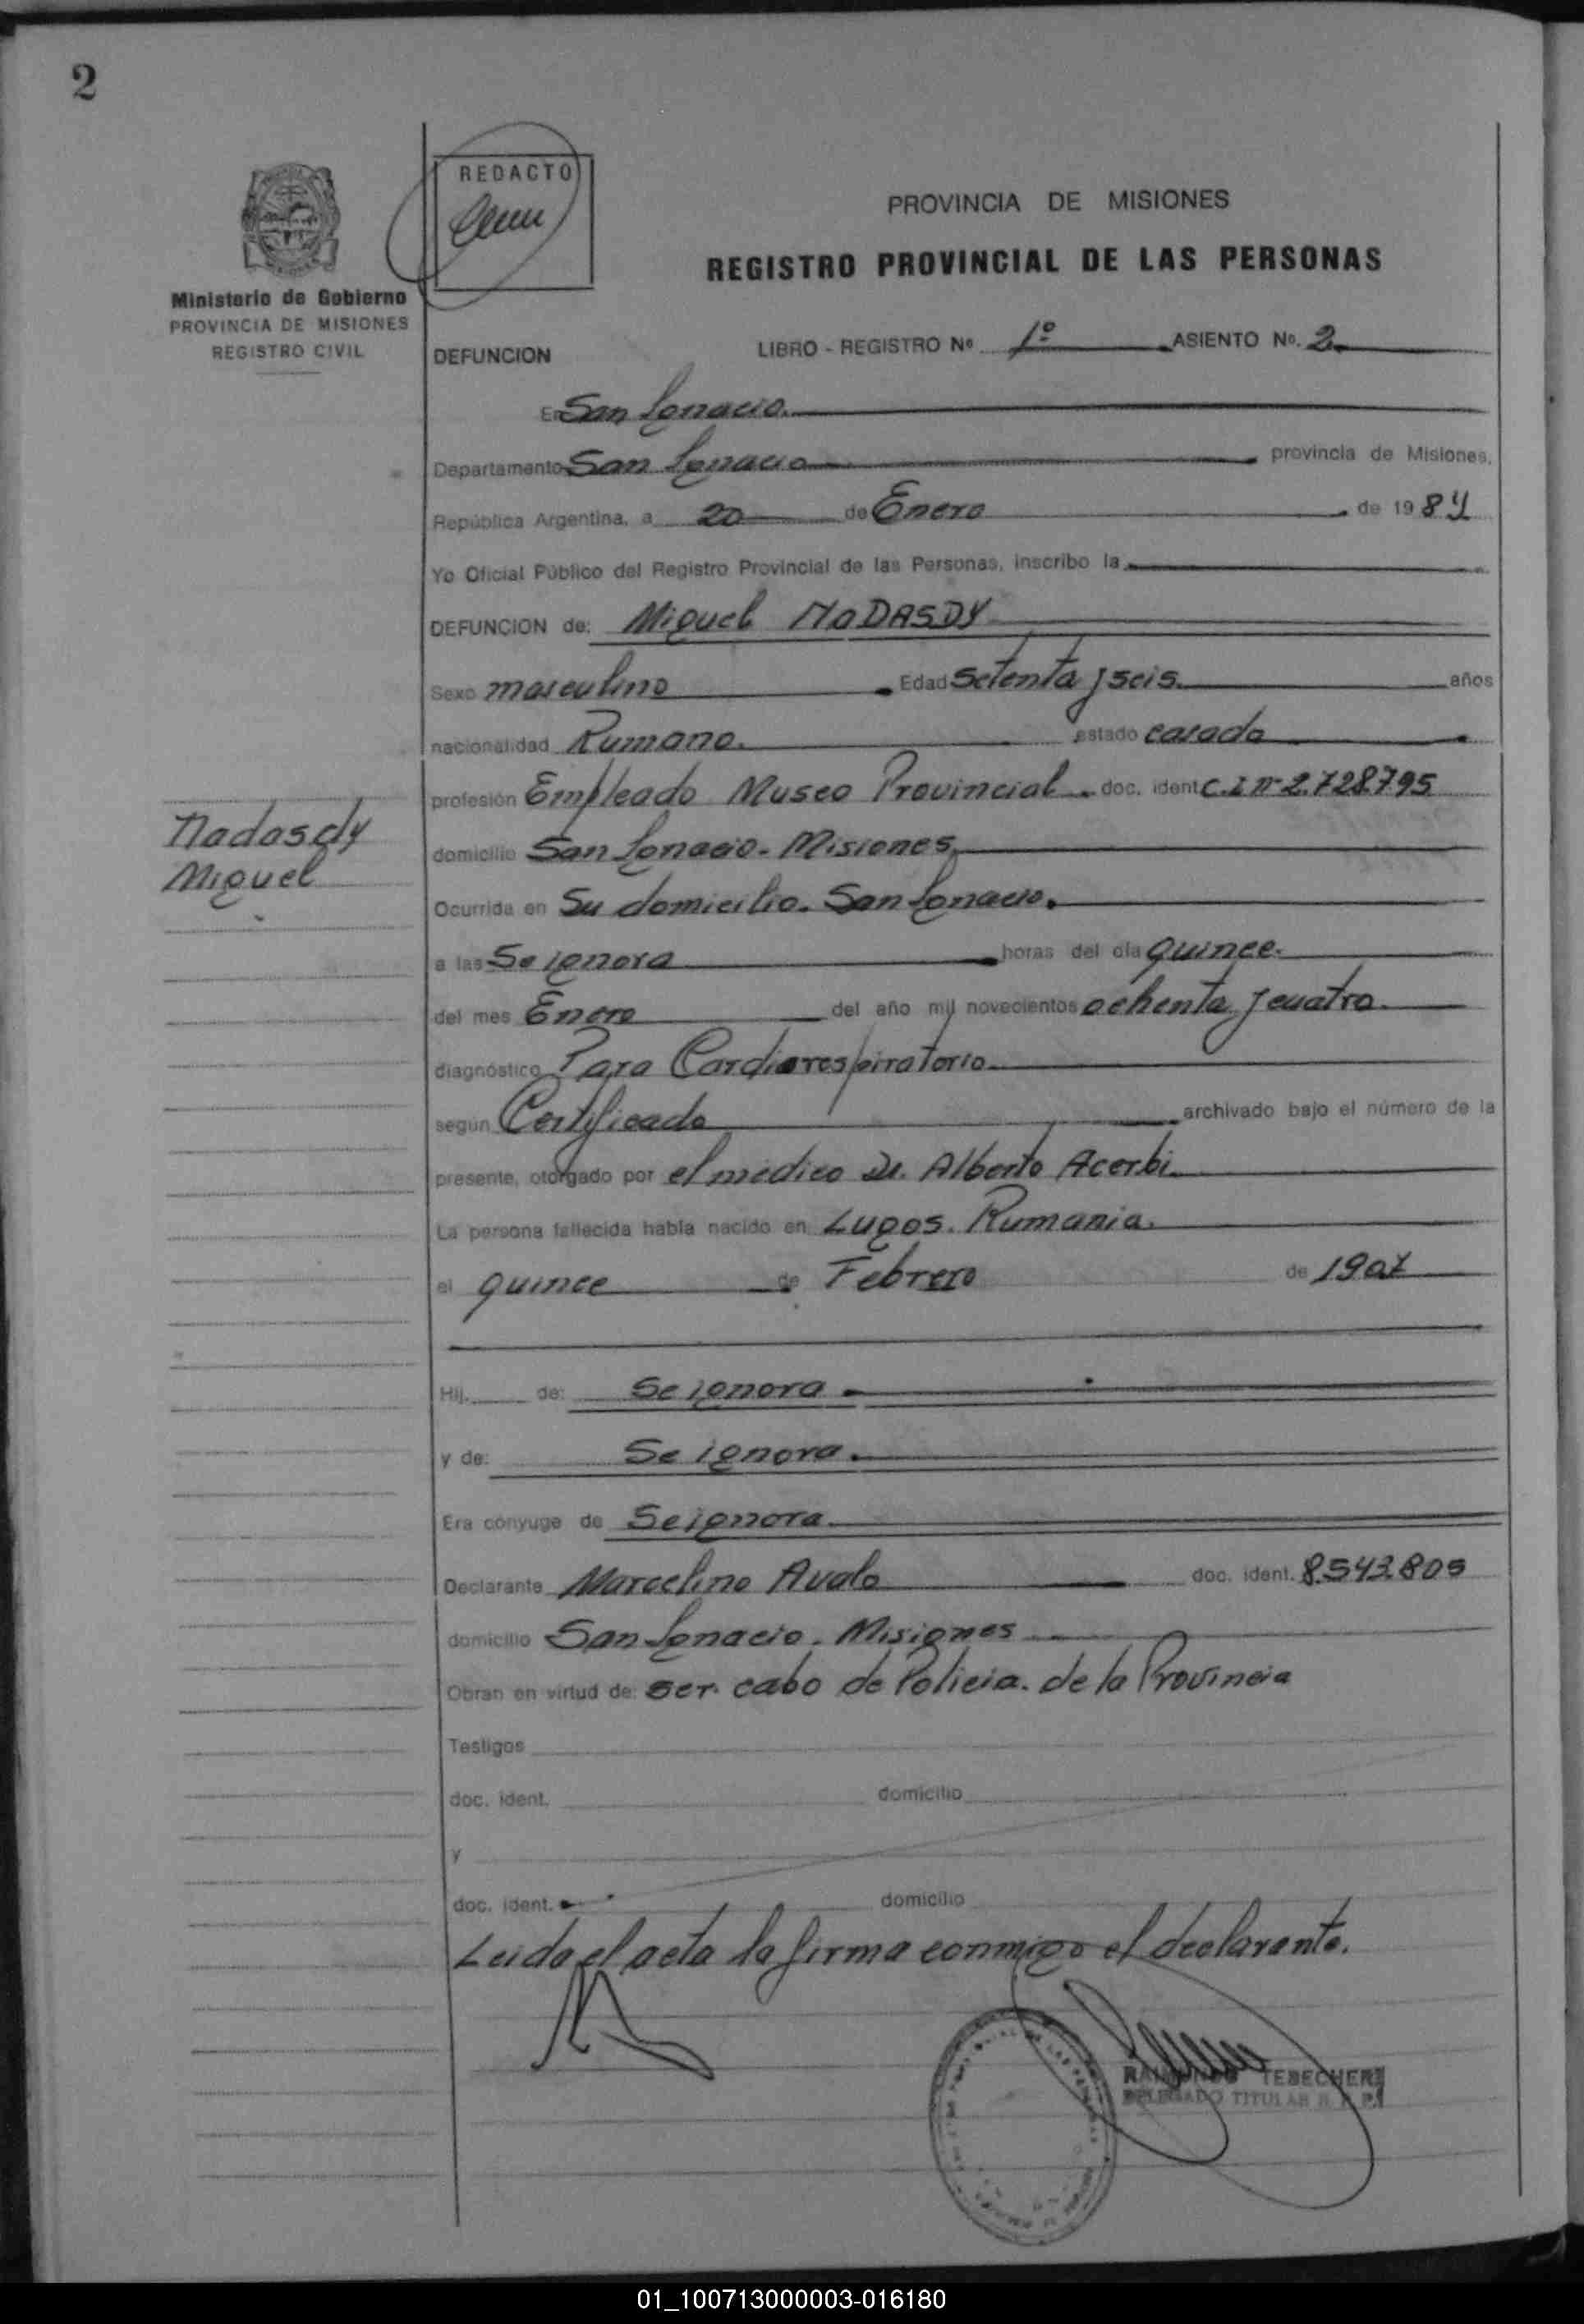 2
REDACTO
PROVINCIA DE MISIONES
REGISTRO PROVINCIAL DE LAS PERSONAS
Ministerio de Gobierno
PROVINCIA DE MISIONES
REGISTRO CIVIL
DEFUNCION LIBRO - REGISTRO Nº 1º ASIENTO Nº. 2
En San Ignacio.
Departamento San Ignacio provincia de Misiones,
República Argentina, a 20 de Enero de 1984
Yo Oficial Público del Registro Provincial de las Personas, inscribo la
DEFUNCION de: Miguel NaDASDY
Sexo masculino Edad Setenta y seis años
nacionalidad Rumano. estado casado
profesión Empleado Museo Provincial doc. ident C.I nº 2.728.795
Nadasdy
Miguel
domicilio San Ignacio - Misiones
Ocurrida en Su domicilio. San Ignacio.
a las Se ignora horas del día quince.
del mes Enero del año mil novecientos ochenta y cuatro.
diagnóstico Paro Cardiorespiratorio
según Certificado archivado bajo el número de la
presente, otorgado por el médico Dr. Alberto Acerbi
La persona fallecida había nacido en Lugos. Rumania.
el quince de Febrero de 1907
Hij. de: Se ignora
y de: Se ignora.
Era cónyuge de Se ignora.
Declarante Marcelino Avalo doc. ident. 8.543.805
domicilio San Ignacio. Misiones
Obran en virtud de: ser cabo de Policia. de la Provincia
Testigos
doc. ident. domicilio
y
doc. ident. domicilio
Leida el acta la firma conmigo el declarante.
RAIMUNDO TEBECHERI
DELEGADO TITULAR R. P. P.
01_100713000003-016180